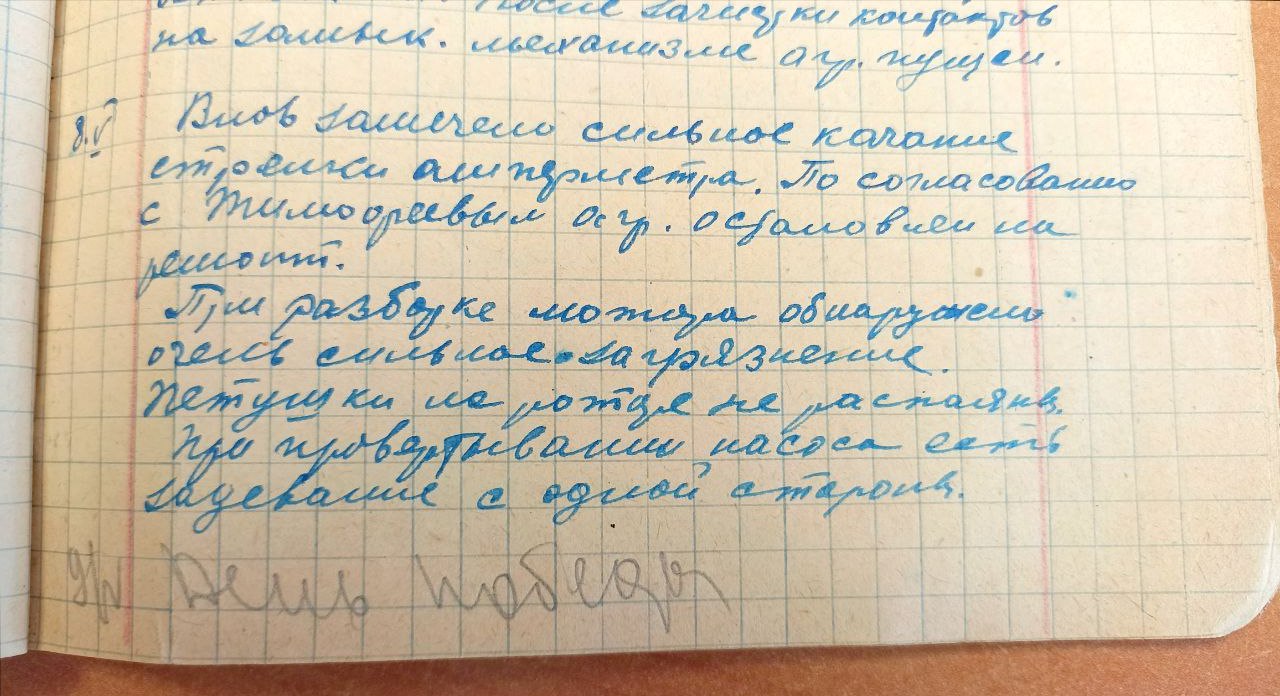 После зачистки контактов
на замык. механизме агр. пущен.
8.V Вновь замечено сильное качание
стрелки амперметра. По согласованию
с Тимофеевым агр. остановлен на
ремонт.
При разборке мотора обнаружено
очень сильное загрязнение.
Петушки на роторе не распаяны.
При провертывании насоса есть
задевание с одной стороны.
9/V День победы